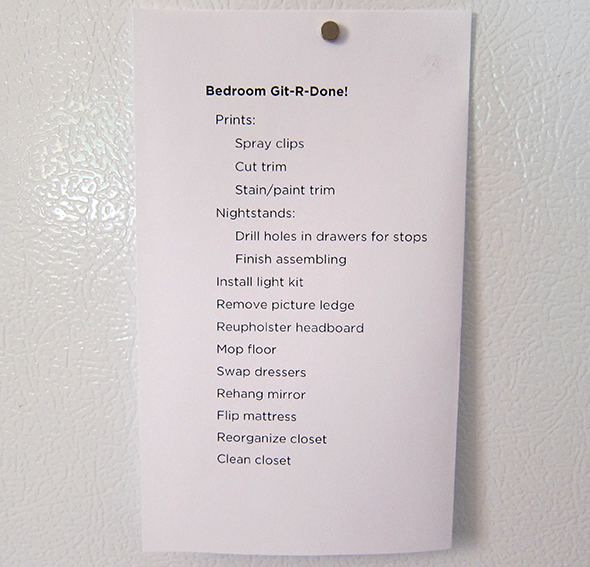 Bedroom Git-R-Done!
Prints:
Spray clips
Cut trim
Stain/paint trim
Nightstands:
Drill holes in drawers for stops
Finish assembling
Install light kit
Remove picture ledge
Reupholster headboard
Mop floor
Swap dressers
Rehang mirror
Flip mattress
Reorganize closet
Clean closet